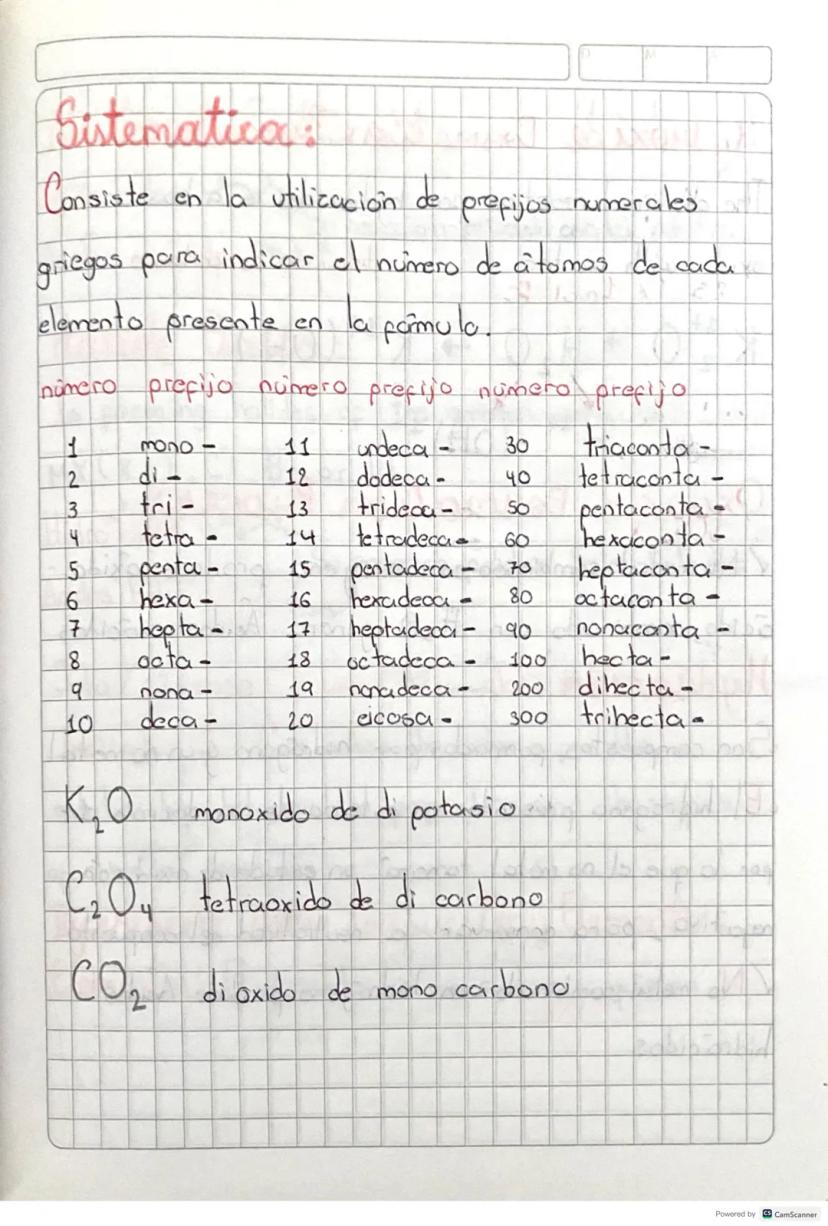 Sistematica:
Consiste en la utilización de prefijos numerales
griegos para indicar el número de átomos de cada
elemento presente en la fórmula.
número prefijo número prefijo número prefijo
1 mono - 11 undeca - 30 triaconta -
2 di - 12 dodeca - 40 tetraconta -
3 tri - 13 trideca - 50 pentaconta -
4 tetra - 14 tetradeca - 60 hexaconta -
5 penta - 15 pentadeca - 70 heptaconta -
6 hexa - 16 hexadeca - 80 octaconta -
7 hepta - 17 heptadeca - 90 nonaconta -
8 octa - 18 octadeca - 100 hecta -
9 nona - 19 nonadeca - 200 dihecta -
10 deca - 20 eicosa - 300 trihecta -
K₂O monoxido de di potasio
C₂O₄ tetraoxido de di carbono
CO₂ di oxido de mono carbono
Powered by CS CamScanner